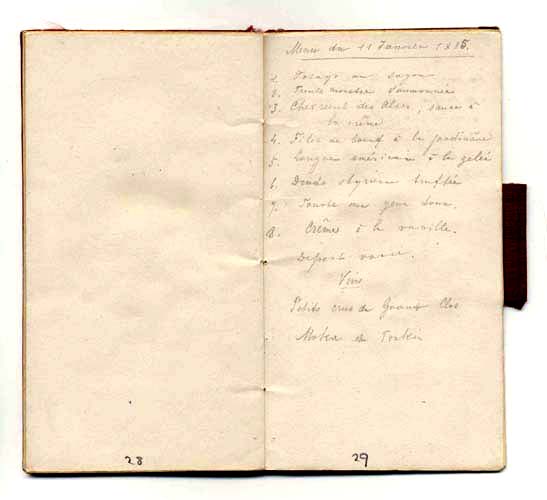 Menu du 11 Janvier 1885.
1. Potage au sagou
2. Truite monstre saumonnée
3. Chevreuil des Alpes, sauce à
la crème
4. Filet de boeuf à la jardinière
5. Langue américaine à la gelée
6. Dinde styrienne truffée
7. Tourte
8. Crème à la vanille.
Dessert varié.
Vins
Petits crus du Grand Clos
Moka et Tonkin
28
29